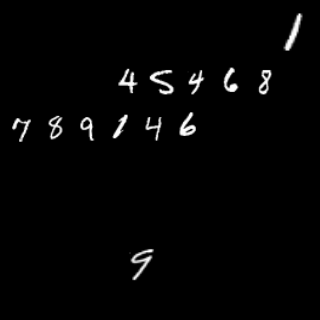 1
45468
789146
9